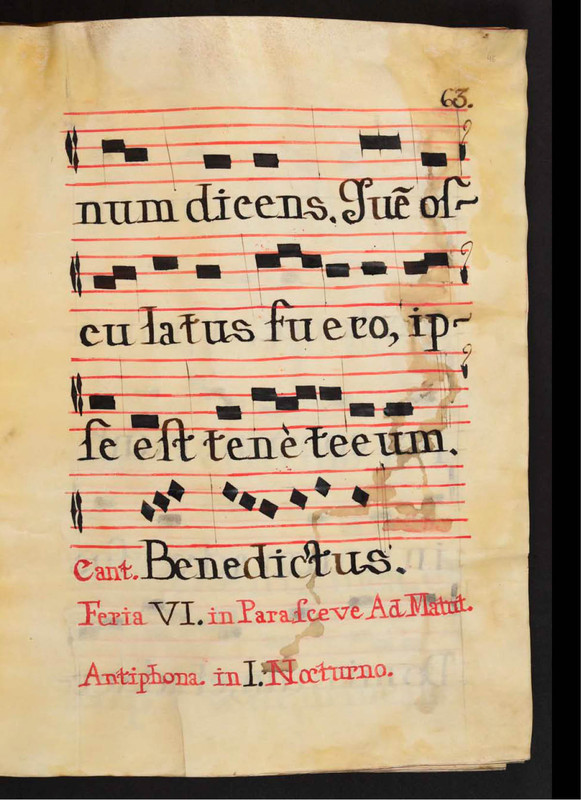 63.
num dicens. Quẽ oſ~
culatus fuero, ip~
ſe eſt tenè te eum.
Cant. Benedictus.
Feria VI. in Paraſceve Ad Matut.
Antiphona. in I. Nocturno.